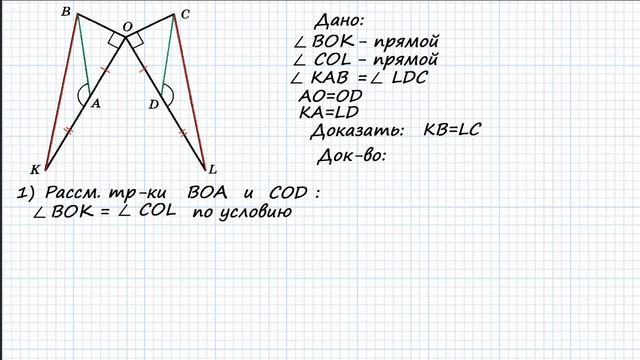 B
C
O
A
D
K
L
Дано:
∠ BOK - прямой
∠ COL - прямой
∠ KAB = ∠ LDC
AO=OD
KA=LD
Доказать: KB=LC
Док-во:
1) Рассм. тр-ки BOA и COD :
∠ BOK = ∠ COL по условию